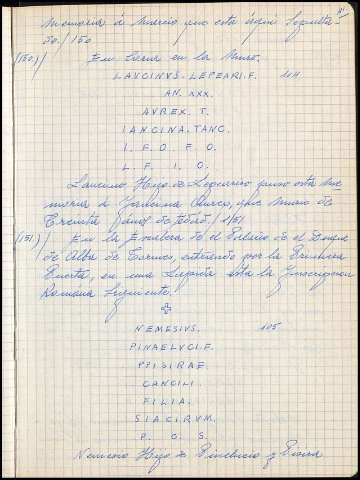 Memoria á Mercio que esta aqui Sepulta-
do./150.
(150)/ En Coria en la Muro.
LAUCINUS. LEPEARI. F. 104
AN. XXX.
AVREX. T.
IANCINA. TANG.
I. F. O. F. O.
L. F. I. C.
Laucino Hijo de Lepeario puso esta me
moria á
Treinta años de Edad/151
(151)/ En la Escalera de el Palacio de el Duque
de Alba de Tormes, entrando por la Primera
Puerta, en una Lapida esta la Ynscripcion
Romana Siguiente.
NEMESIVS. 105
PINAELVCI. F.
PPISIRAE.
CANCILI.
FILIA.
SIACIRVM.
P. O. S.
Nemesio Hijo de Pinelucio y Pisira